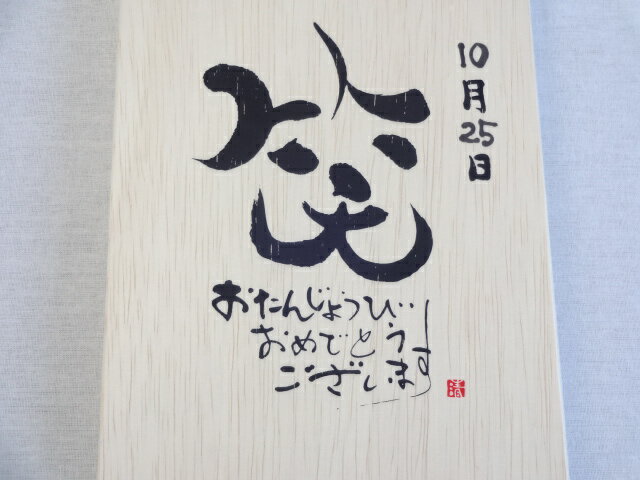 10月25日
笑
おたんじょうび
おめでとう
ございます